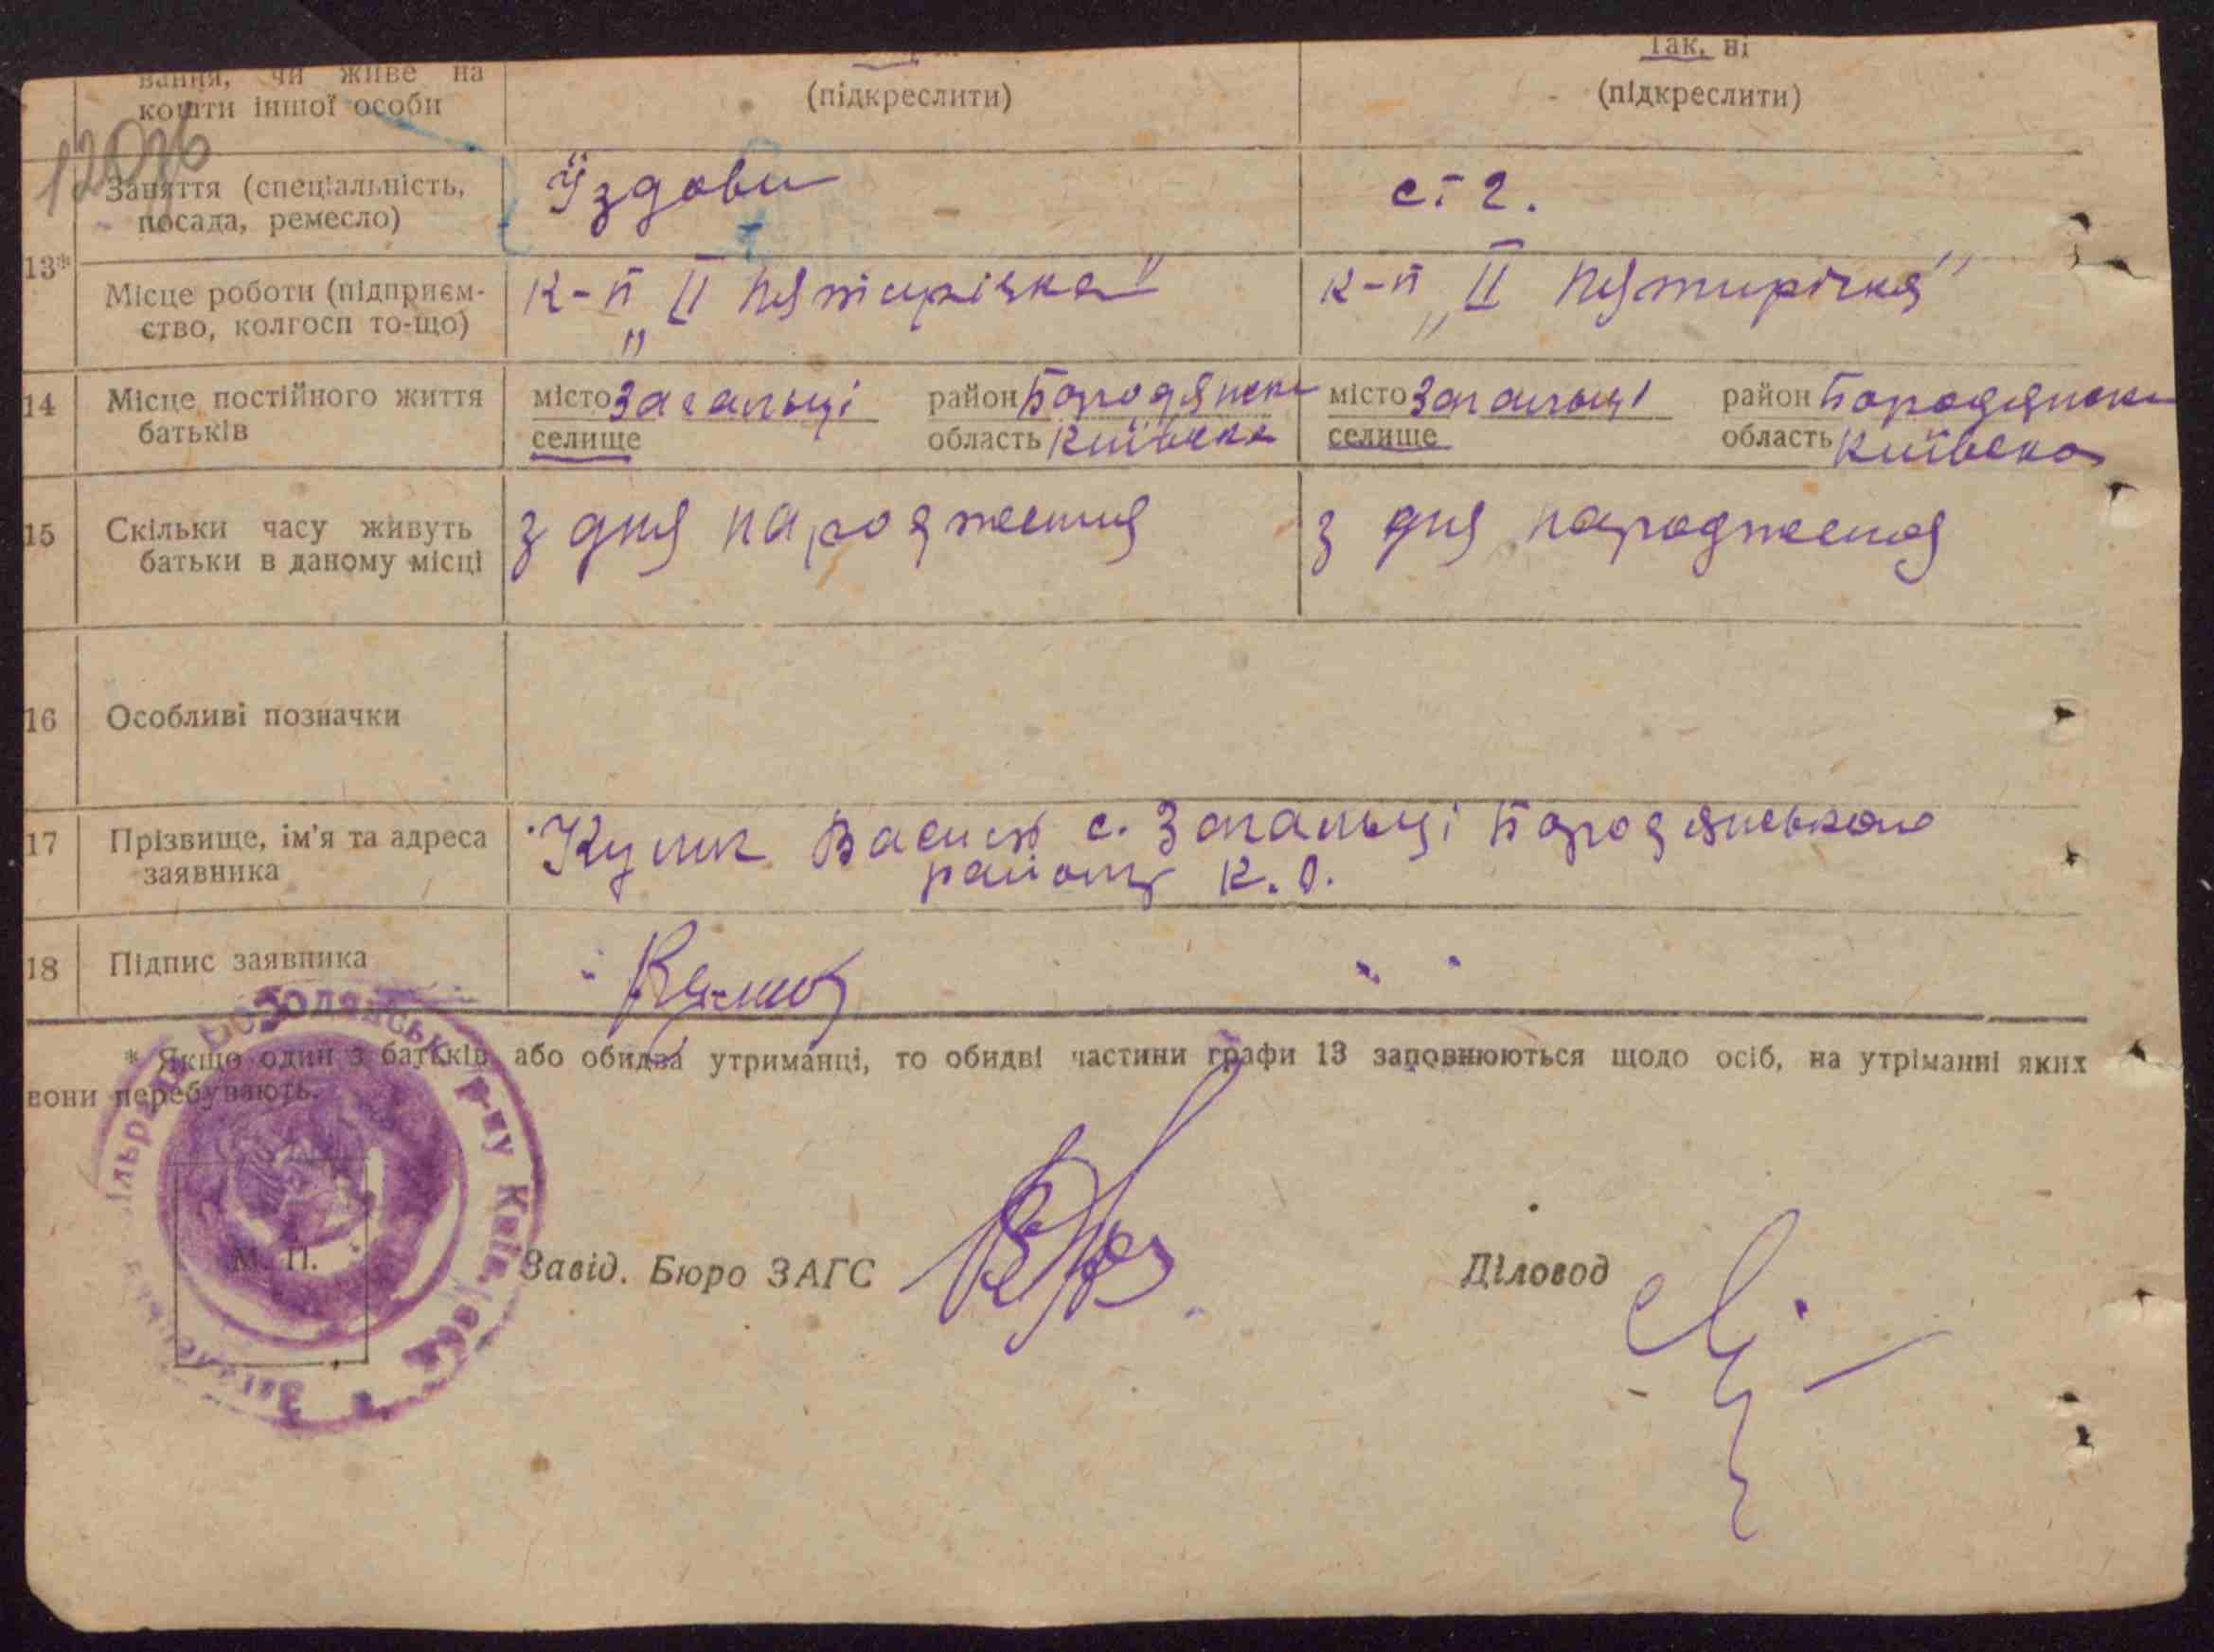 Так, ні
вання, чи живе на
кошти іншої особи
(підкреслити)
(підкреслити)
Заняття (спеціальність,
посада, ремесло)
Їздови
ст 2.
13*
Місце роботи (підприєм-
ство, колгосп то-що)
к-п „II Пятирічка"
к-п „II Пятирічка"
14
Місце постійного життя
батьків
місто Загальці район Бородянськ
селище область Київська
місто Загальці район Бородянськ
селище область Київська
15
Скільки часу живуть
батьки в даному місці
з дня народження
з дня народження
16
Особливі позначки
17
Прізвище, ім'я та адреса
заявника
Кулик Василь с. Загальці Бородянського
району К. О.
18
Підпис заявника
* Якщо один з батьків, або обидва утриманці, то обидві частини графи 13 заповнюються щодо осіб, на утріманні яких
вони перебувають.
Бородянськ р-ну Київ.
М. П.
Завід. Бюро ЗАГС
Діловод